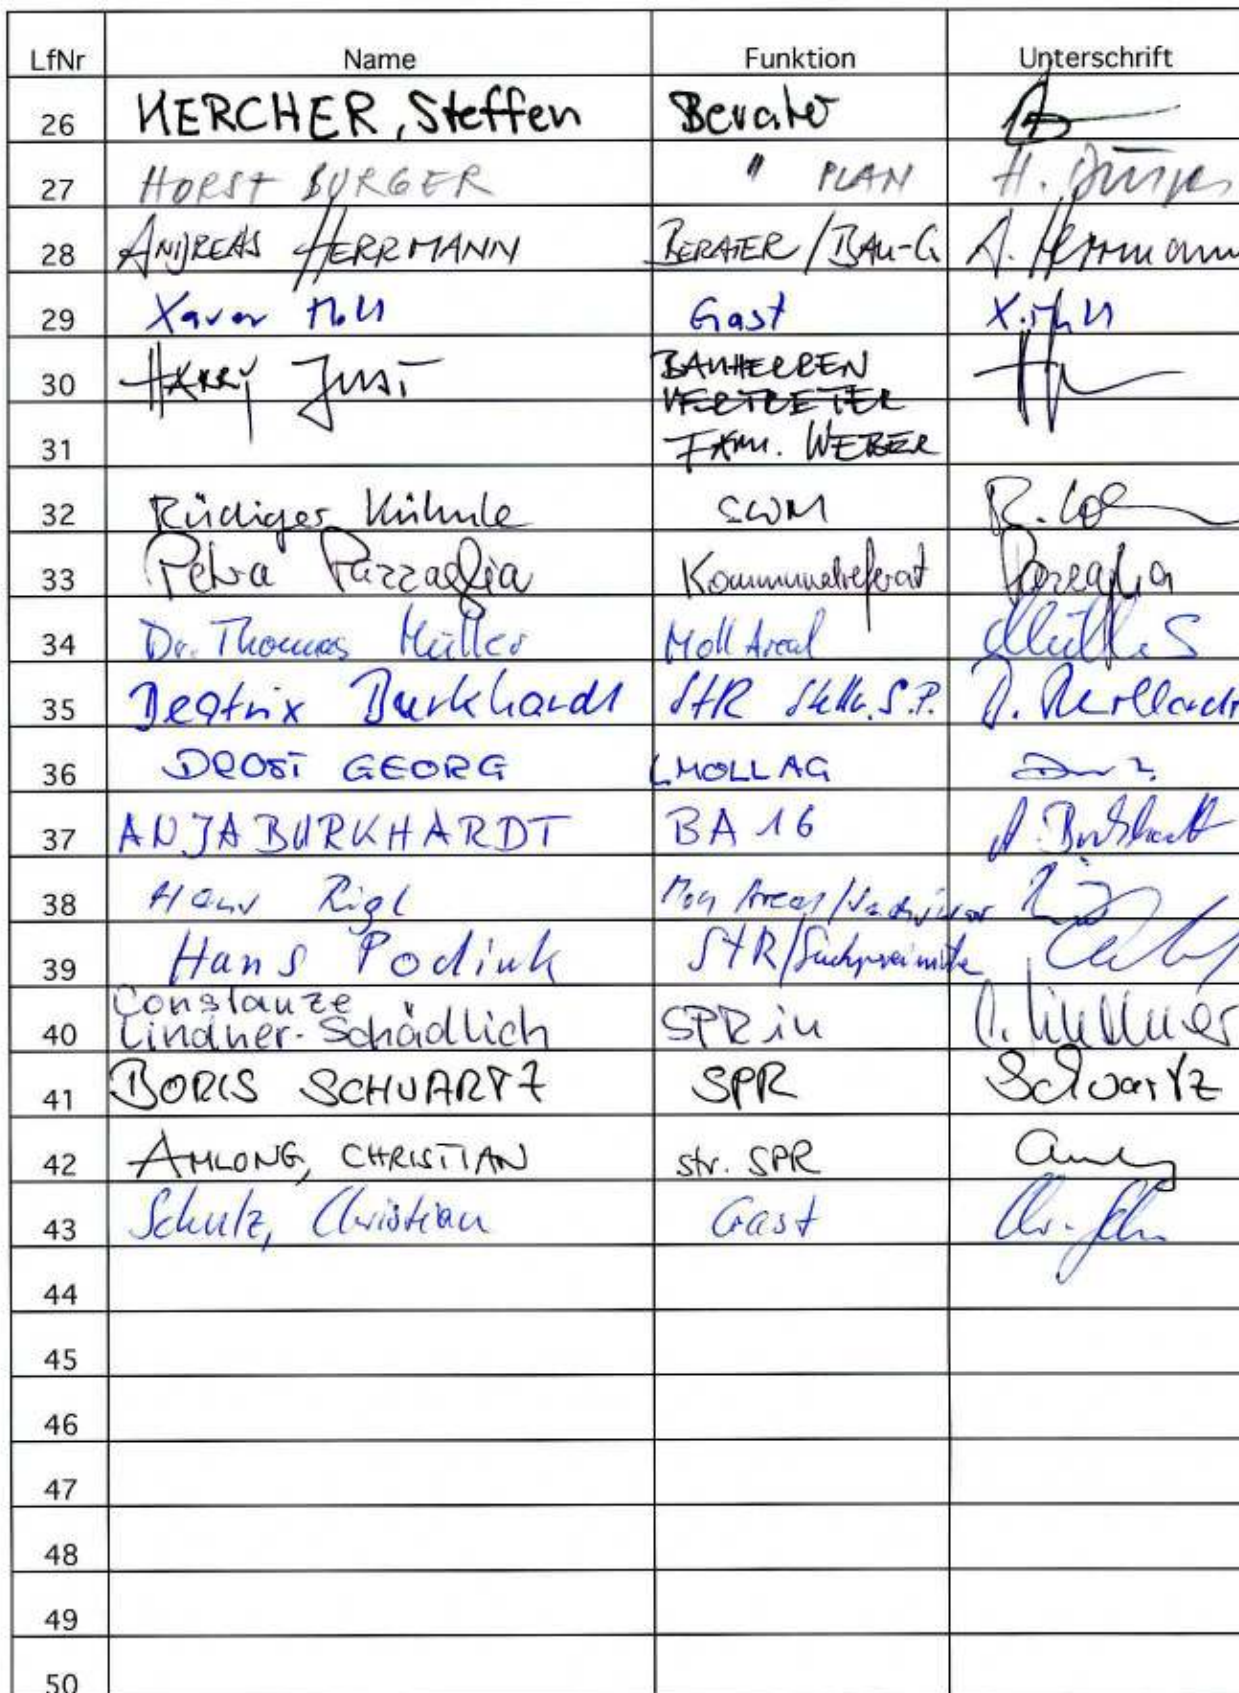 LfNr Name Funktion Unterschrift
26 KERCHER, Steffen Berater
27 HORST BURGER " PLAN H. Burger
28 ANDREAS HERRMANN BERATER / BAU-G A. Herrmann
29 Xaver Moll Gast X. Moll
30 HARRY JUST BAUHERREN
VERTRETER
31 FAM. WEBER
32 Rüdiger Kühnle SWM
33 Petra Pazzaglia Kommunalreferat Pazzaglia
34 Dr. Thomas Müller Moll Areal
35 Beatrix Burkhardt StR Stellv. S.P. B. Burkhardt
36 DROST GEORG MOLL AG
37 ANJA BURKHARDT BA 16 A. Burkhardt
38 Hans Rigl Moll Areal /
39 Hans Podiuk StR /
40 Constanze
Lindner-Schädlich SPRin C. Lindner
41 BORIS SCHWARTZ SPR Schwartz
42 AMLONG, CHRISTIAN str. SPR
43 Schulz, Christian Gast
44
45
46
47
48
49
50